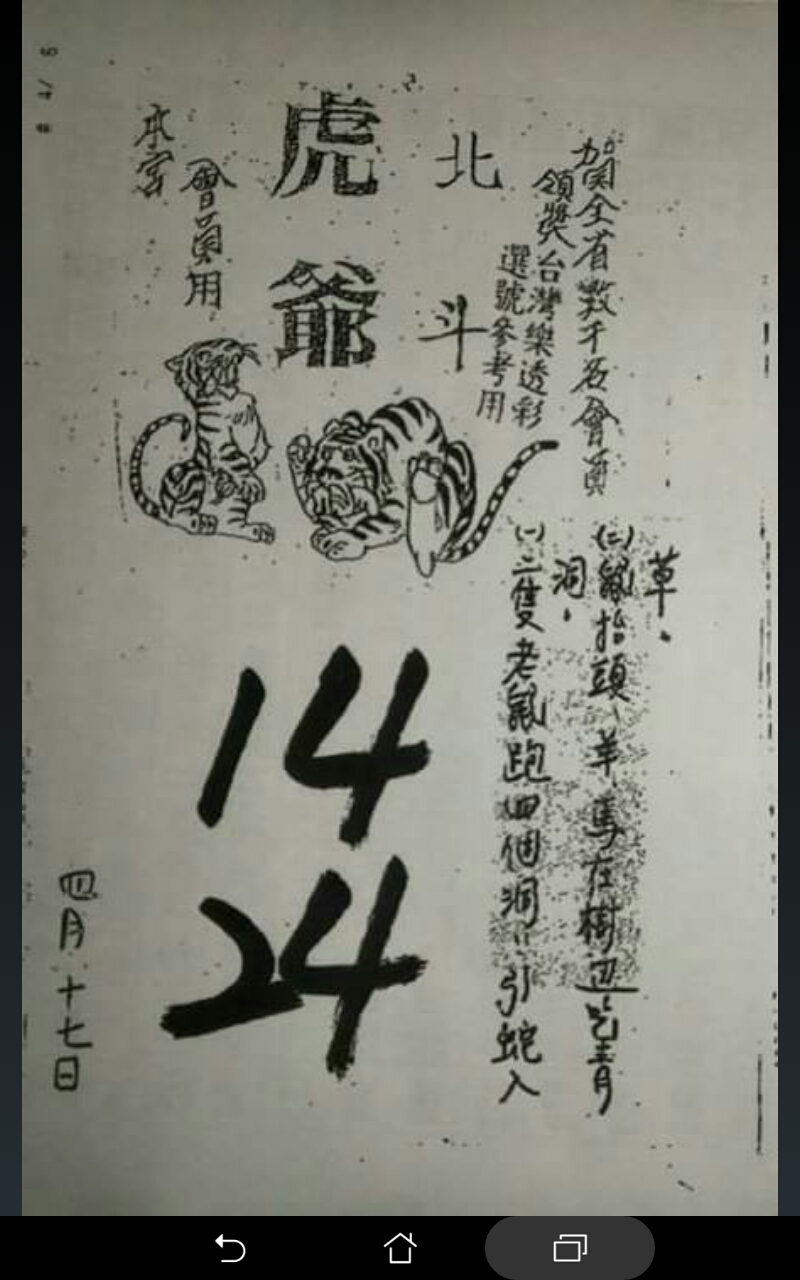 賀全省數千名會員
領獎台灣樂透彩
選號參考用
北斗
虎爺
會員用
本宮
(一)二隻老鼠跑四個洞,引蛇入
洞,
(二)鼠抬頭、羊馬在樹边吃青
草.
14
24
四月十七日